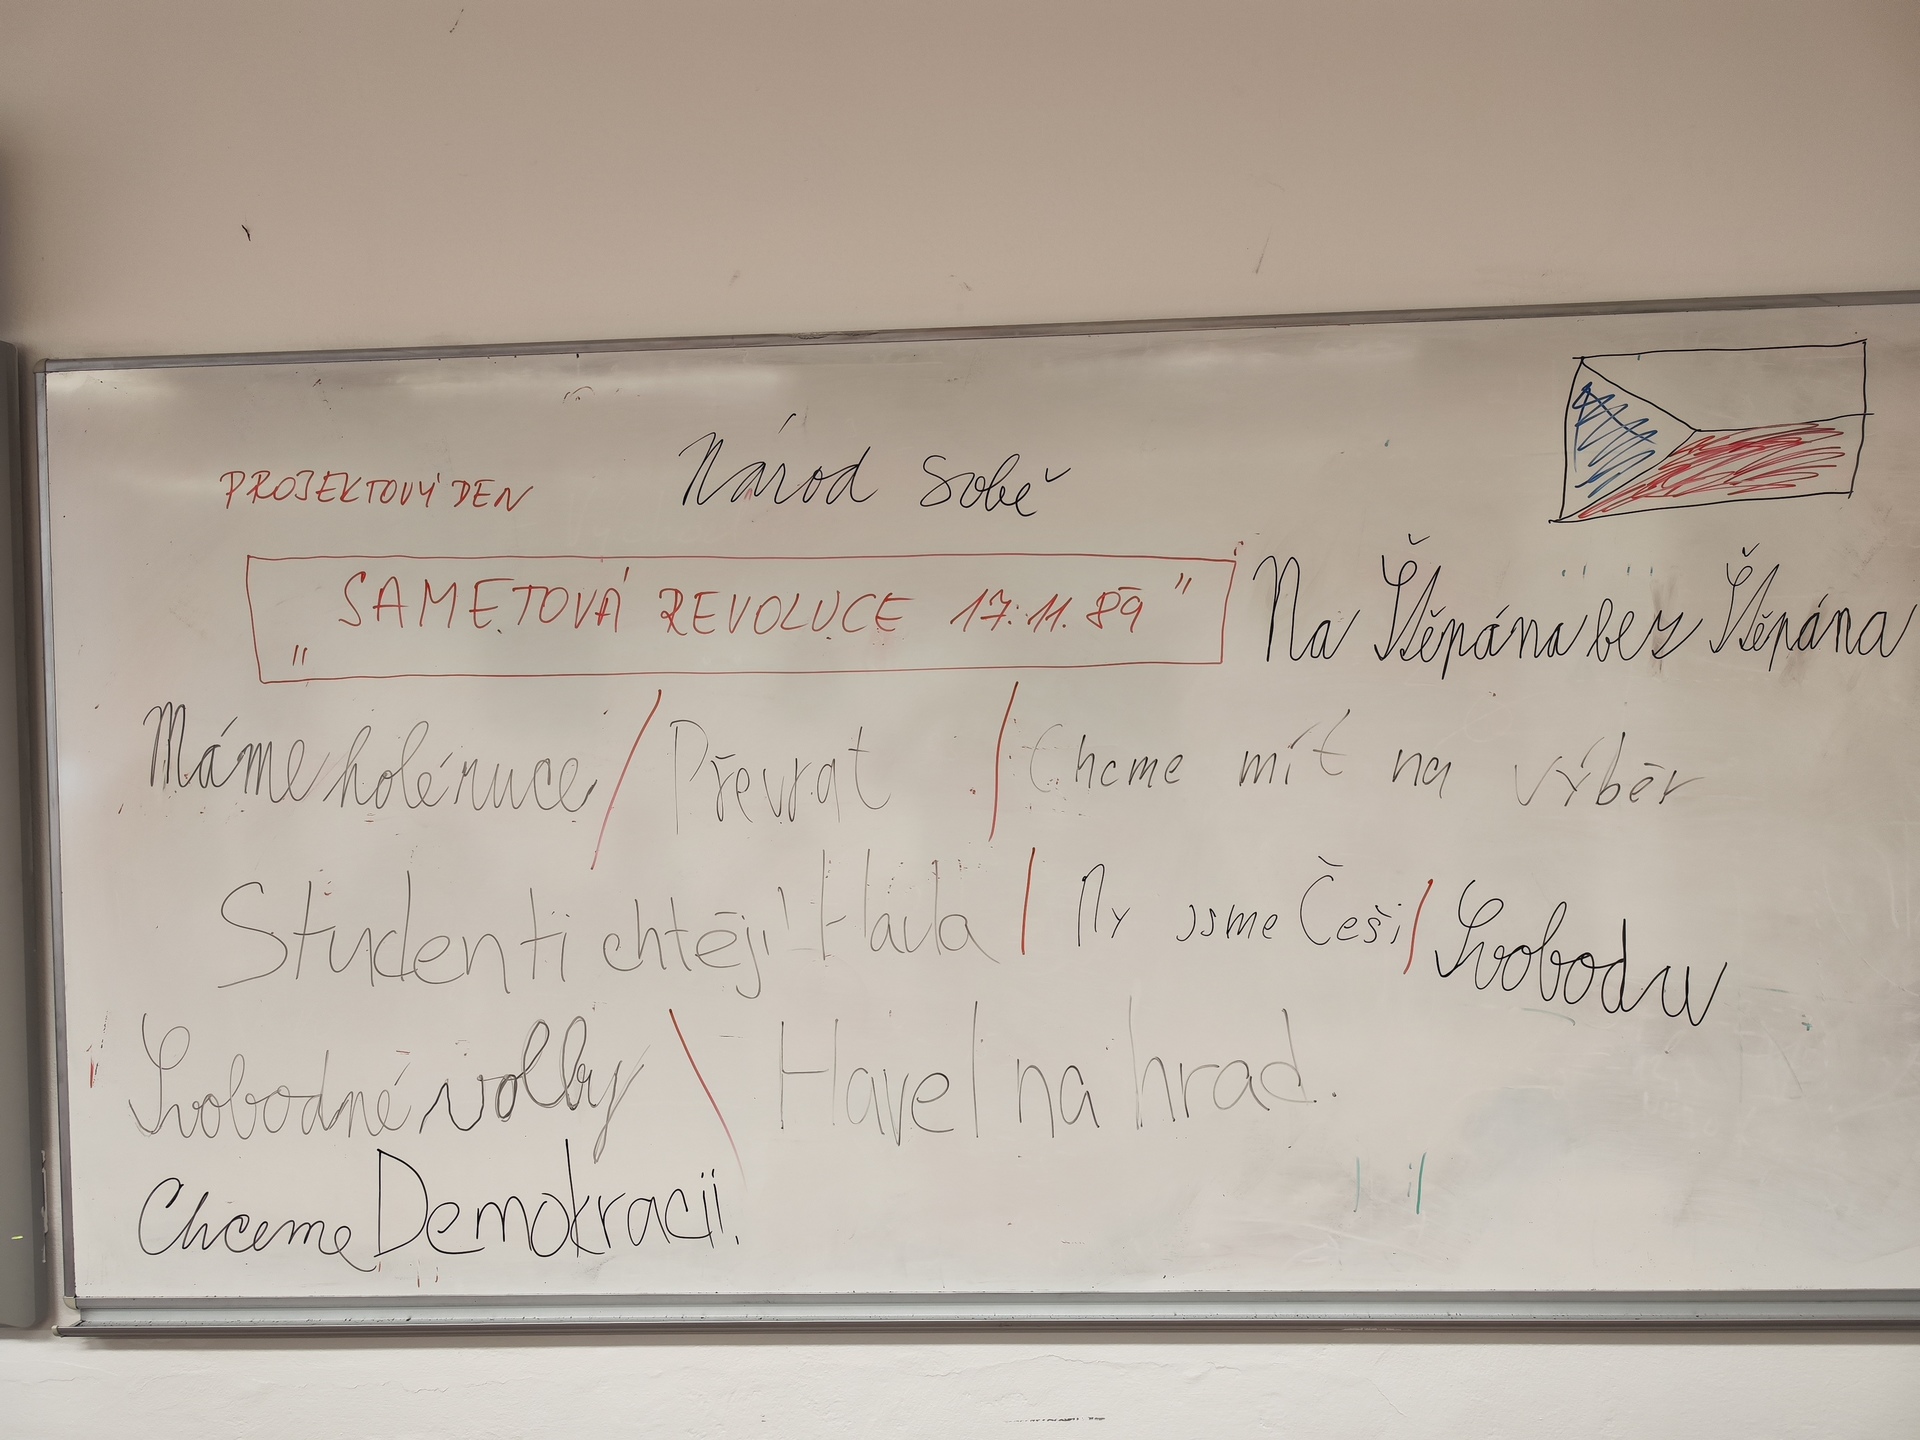 PROJEKTOVÝ DEN Národ sobě
„SAMETOVÁ REVOLUCE 17.11.89" Na Štěpána bez Štěpána
Máme holé ruce / Převrat / Chcme mít na výběr
Studenti chtějí Havla / My jsme Češi / Svobodu
Svobodné volby \ Havel na hrad.
Chceme Demokracii!